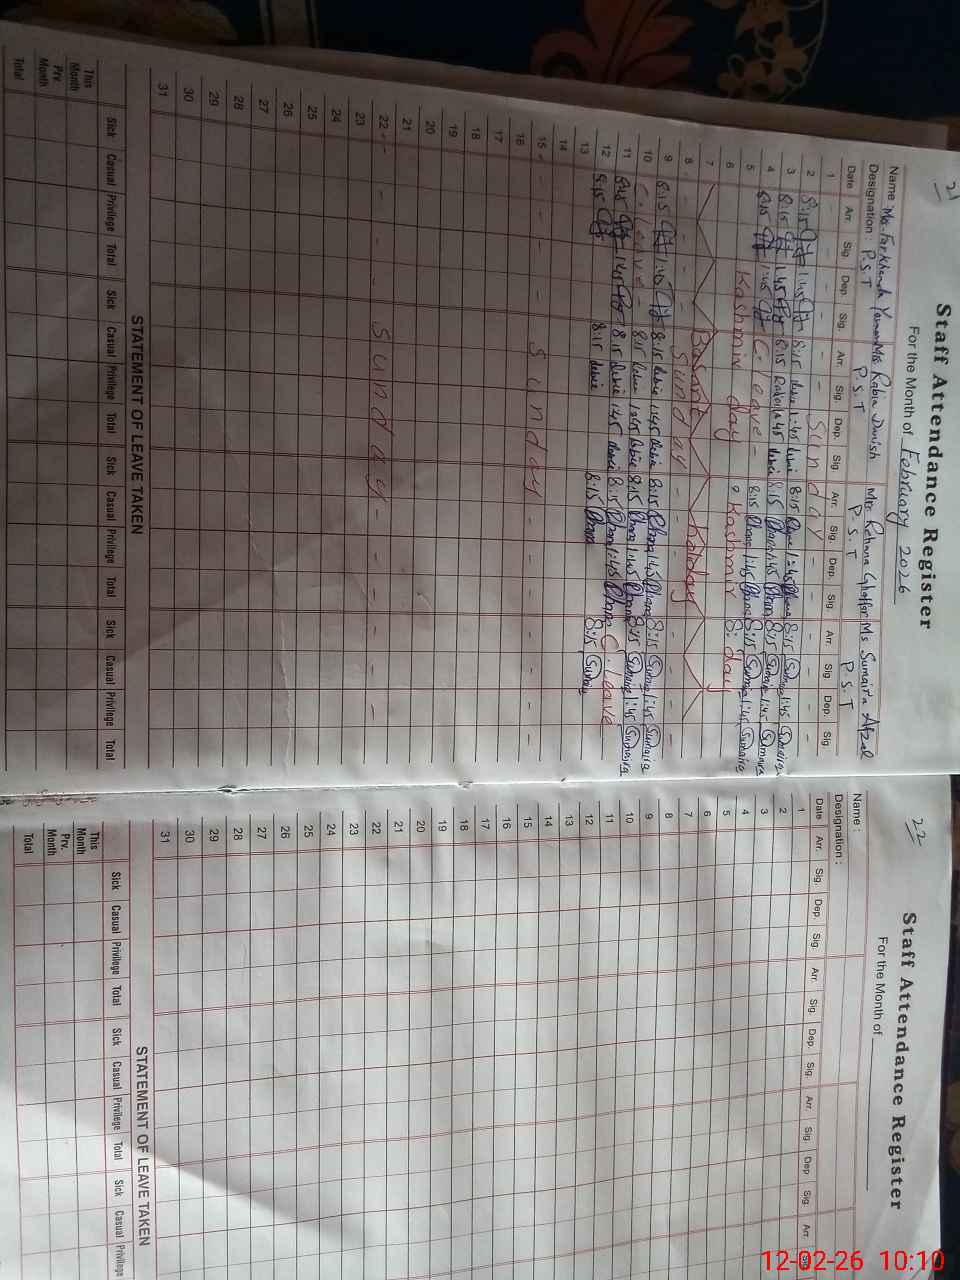 21
Staff Attendance Register
For the Month of February 2026
Name : Mrs. Farkhanda Mrs Rabia Danish Mrs Rehana Ghaffar Ms Sumaira Afzal
Designation : P.S.T P.S.T P.S.T P.S.T
Date Arr. Sig. Dep. Sig. Arr. Sig. Dep. Sig. Arr. Sig. Dep. Sig. Arr. Sig Dep. Sig.
1 - - - - - - Sunday - - - - -
2 8:15 1:45 8:15 1:45 8:15 1:45 8:15 Sumaira 1:45 Sumaira
3 8:15 1:45 8:15 Rabia 1:45 8:15 1:45 8:15 Sumaira 1:45 Sumaira
4 8:15 1:45 C. leave - 8:15 1:45 8:15 Sumaira 1:45 Sumaira
5 Kashmir day Kashmir day
6
7 Basant Holiday
8 - - - Sunday - - - -
9 8:15 1:45 8:15 1:45 8:15 1:45 8:15 Sumaira 1:45 Sumaira
10 C. leave - 8:15 1:45 8:15 1:45 8:15 Sumaira 1:45 Sumaira
11 8:15 1:45 8:15 1:45 8:15 1:45 C. Leave
12 8:15 8:15 8:15 8:15 Sumaira
13
14
15 - - - - Sunday - - - - -
16
17
18
19
20
21
22 - - - - Sunday - - - - -
23
24
25
26
27
28
29
30
31
STATEMENT OF LEAVE TAKEN
Sick Casual Privilege Total Sick Casual Privilege Total Sick Casual Privilege Total Sick Casual Privilege Total
This Month
Prv. Month
Total
22
Staff Attendance Register
For the Month of
Name :
Designation :
Date Arr. Sig. Dep. Sig. Arr. Sig. Dep. Sig. Arr. Sig. Dep Sig. Arr. Sig.
1
2
3
4
5
6
7
8
9
10
11
12
13
14
15
16
17
18
19
20
21
22
23
24
25
26
27
28
29
30
31
STATEMENT OF LEAVE TAKEN
Sick Casual Privilege Total Sick Casual Privilege Total Sick Casual Privilege
This Month
Prv. Month
Total
12-02-26 10:10